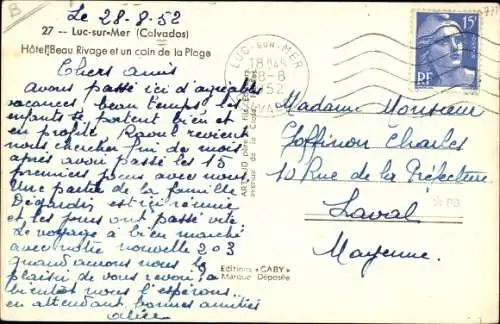 B
Le 28-8-52
27 — Luc-sur-Mer (Calvados)
Hôtel Beau Rivage et un coin de la Plage
Chers amis
avons passé ici d'agréables
vacances, beau temps, les
enfants se portent bien et
en profite. Raoul revient
nous chercher fin de mois
après avoir passé les 15
premiers jours avec nous
Une partie de la famille
Dégardin est ici réunie
et les jours ont passé vite
Le voyage à bien marché
avec notre nouvelle 203
quand aurons nous le
plaisir de vous revoir, à
bientôt nous l'espérons
en attendant bonnes amitiés
alice
Editions « GABY »
Marque Déposée
LUC-SUR-MER
18H45
28-8
1952
15F
RF
Madame Monsieur
Joffinon Charles
10 Rue de la Préfecture
Laval
Mayenne
PB